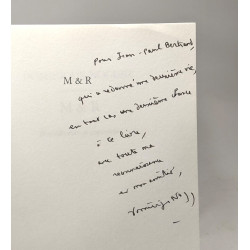 Pour Jean-Paul Bertrand,
M & R
qui a redonné une deuxième vie,
en tout cas une dernière chance
à ce livre,
avec toute ma
reconnaissance
et mon amitié,